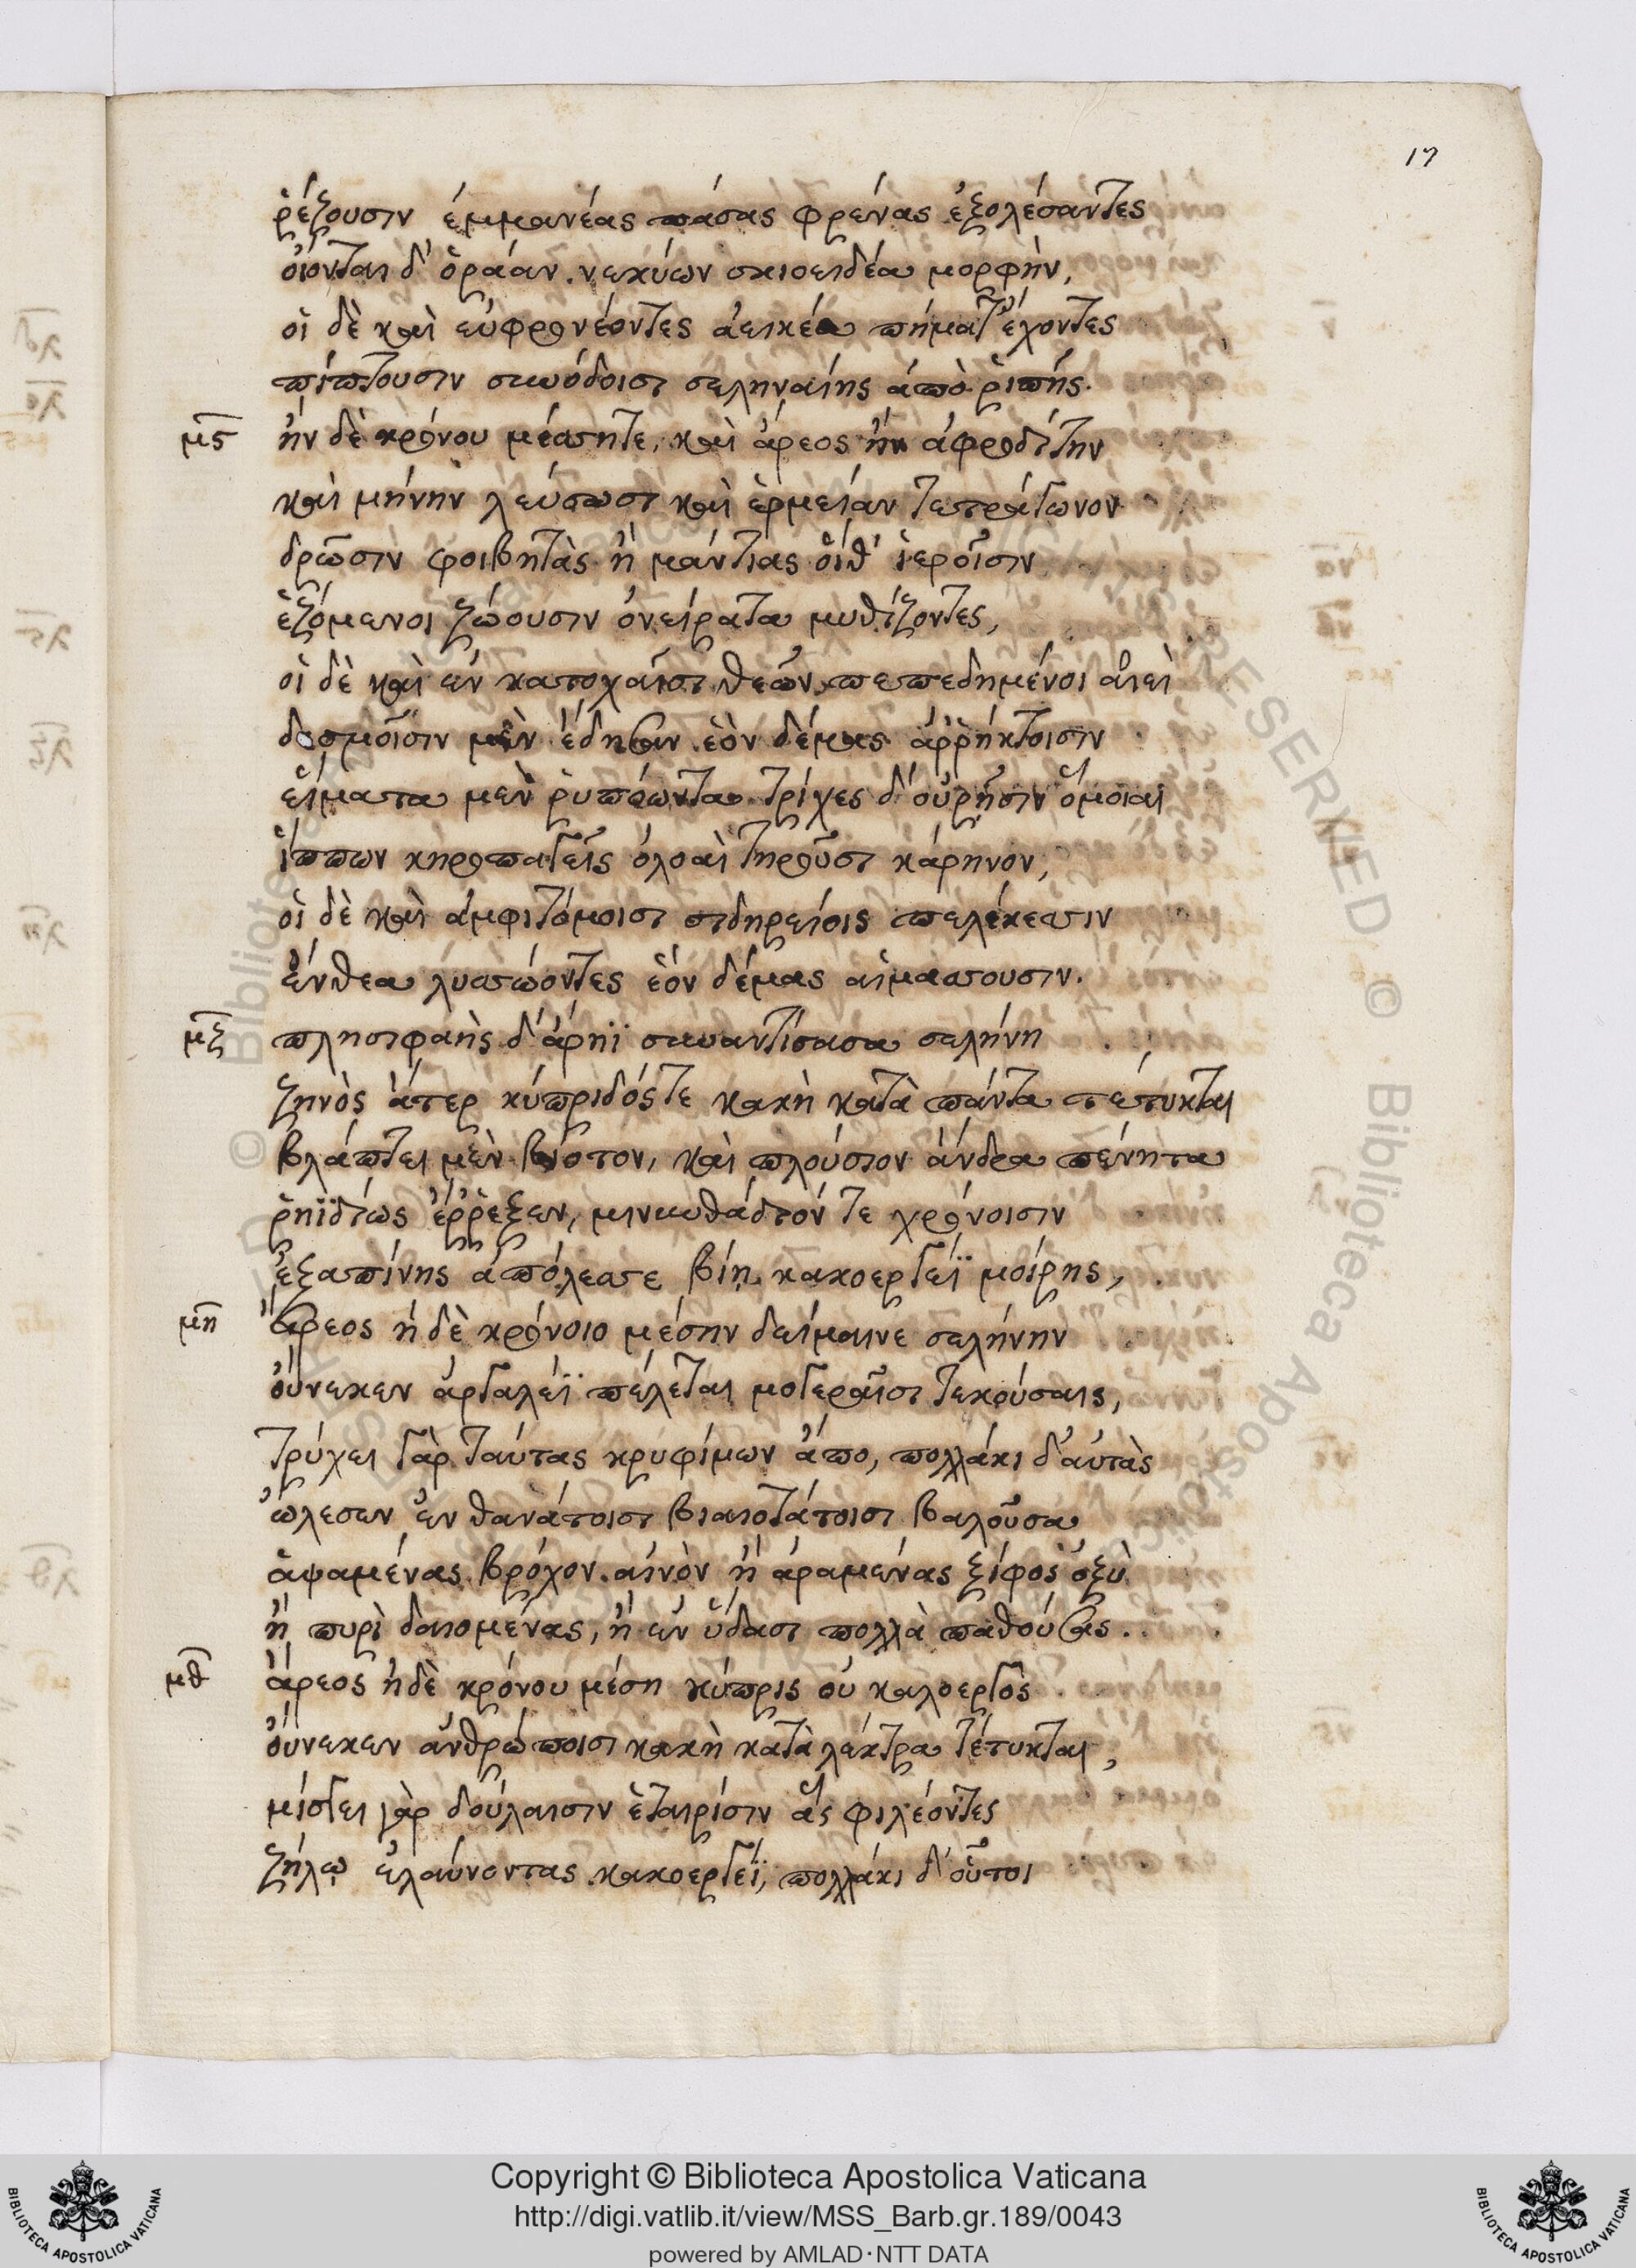 17
ῥέζουσιν ἐμμανέας πάσας φρένας ἐξολέσαντες
οἴονται δ' ὁράαν. νεκύων σκιοειδέα μορφὴν,
οἱ δὲ καὶ εὐφρονέοντες ἀεικέα πήματ' ἔχοντες
πίπτουσιν συνόδοισι σεληναίης ἀπὸ ῥιπῆς.
μς ἢν δὲ κρόνου μέσση τε, καὶ ἄρεος ἢν ἀφροδίτην
καὶ μήνην λεύσωσι καὶ ἑρμείαν τετράγωνον
δρῶσιν φοιβητὰς ἢ μάντιας οἵθ' ἱεροῖσιν
ἑζόμενοι ζώουσιν ὀνείρατα μυθίζοντες,
οἱ δὲ καὶ ἐν κατοχαῖσι θεῶν πεπεδημένοι αἰεὶ
δεσμοῖσιν μὲν ἔδησαν ἑὸν δέμας ἀῤῥήκτοισιν
εἵματα μὲν ῥυπόωντα τρίχες δ' οὐρῆσιν ὅμοιαι
ἵππων κηροπαγεῖς ὀλοαὶ τηροῦσι κάρηνον,
οἱ δὲ καὶ ἀμφιτόμοισι σιδηρείοις πελέκεσσιν
ἔνθεα λυσσώοντες ἑὸν δέμας αἱμάσσουσιν.
μζ πλησιφαὴς δ' ἄρηϊ συναντίσασα σελήνη
ζηνὸς ἄτερ κύπριδός τε κακὴ κατὰ πάντα τέτυκται
βλάπτει μὲν βίοτον, καὶ πλούσιον ἄνδρα πένητα
ῥηϊδίως ἔῤῥεξεν, μινυνθάδιόν τε χρόνοισιν
ἐξαπίνης ἀπόλεσσε βίῃ κακοεργέϊ μοίρης,
μη ἄρεος ἠδὲ κρόνοιο μέσην δείμαινε σελήνην
οὕνεκεν ἀργαλέϊ πέλεται μογεραῖσι τεκούσαις,
τρύχει γὰρ ταύτας κρυφίμων ἄπο, πολλάκι δ' αὐτὰς
ὤλεσεν ἐν θανάτοισι βιαιοτάτοισι βαλοῦσα
ἁψαμένας βρόχον αἰνὸν ἢ ἀραμένας ξίφος ὀξὺ
ἢ πυρὶ δαιομένας, ἢ ἐν ὕδασι πολλὰ παθούσας.
μθ ἄρεος ἠδὲ κρόνου μέση κύπρις οὐ καλοεργὸς
οὕνεκεν ἀνθρώποισι κακὴ κατὰ λέκτρα τέτυκται,
μίσγει γὰρ δούλαισιν ἑταιρίσιν ἃς φιλέοντες
ζήλῳ ἐλαύνοντας κακοεργέϊ, πολλάκι δ' οὗτοι
Copyright © Biblioteca Apostolica Vaticana
http://digi.vatlib.it/view/MSS_Barb.gr.189/0043
powered by AMLAD·NTT DATA
BIBLIOTECA APOSTOLICA VATICANA
BIBLIOTECA APOSTOLICA VATICANA